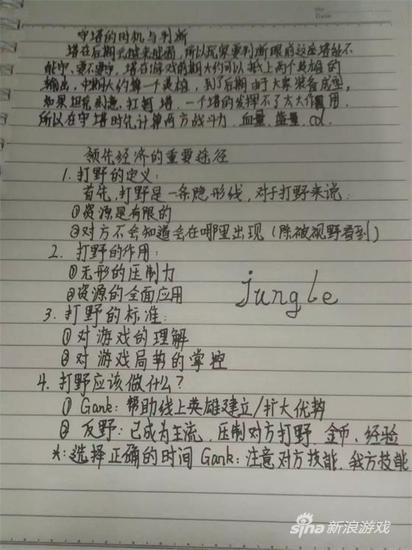 守塔的时机与判断
塔在后期会越来越弱，所以玩家要判断眼前这座塔能不
能守，要不要守，塔在游戏前期大约可以抵上两个英雄的
输出，中期大约算一个英雄，到了后期由于大家装备成型，
如果坦克到意，扛着塔，一个塔的发挥不了太大作用，
所以在守塔时先计算两方战斗力，血量，能量，CD.
领先经济的重要途径
1. 打野的定义：
首先，打野是一条隐形线，对于打野来说：
①资源是有限的
②对方不会知道会在哪里出现（除被视野看到）
2. 打野的作用：
①无形的压制力
②资源的全面应用
jungle
3. 打野的标准：
①对游戏的理解
②对游戏局势的掌控
4. 打野应该做什么？
① Gank：帮助线上英雄建立/扩大优势
② 反野：已成为主流，压制对方打野，金币，经验
*：选择正确的时间Gank：注意对方技能，我方技能
sina新浪游戏